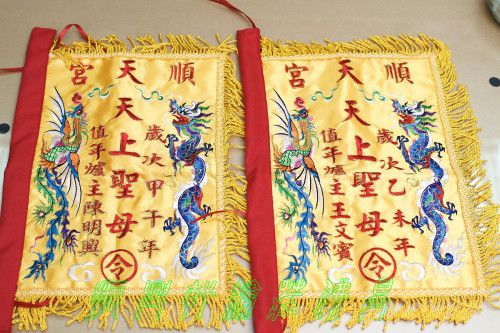 順天宮
歲次甲午年
天上聖母
令
值年爐主陳明照
順天宮
歲次乙未年
天上聖母
令
值年爐主王文賓